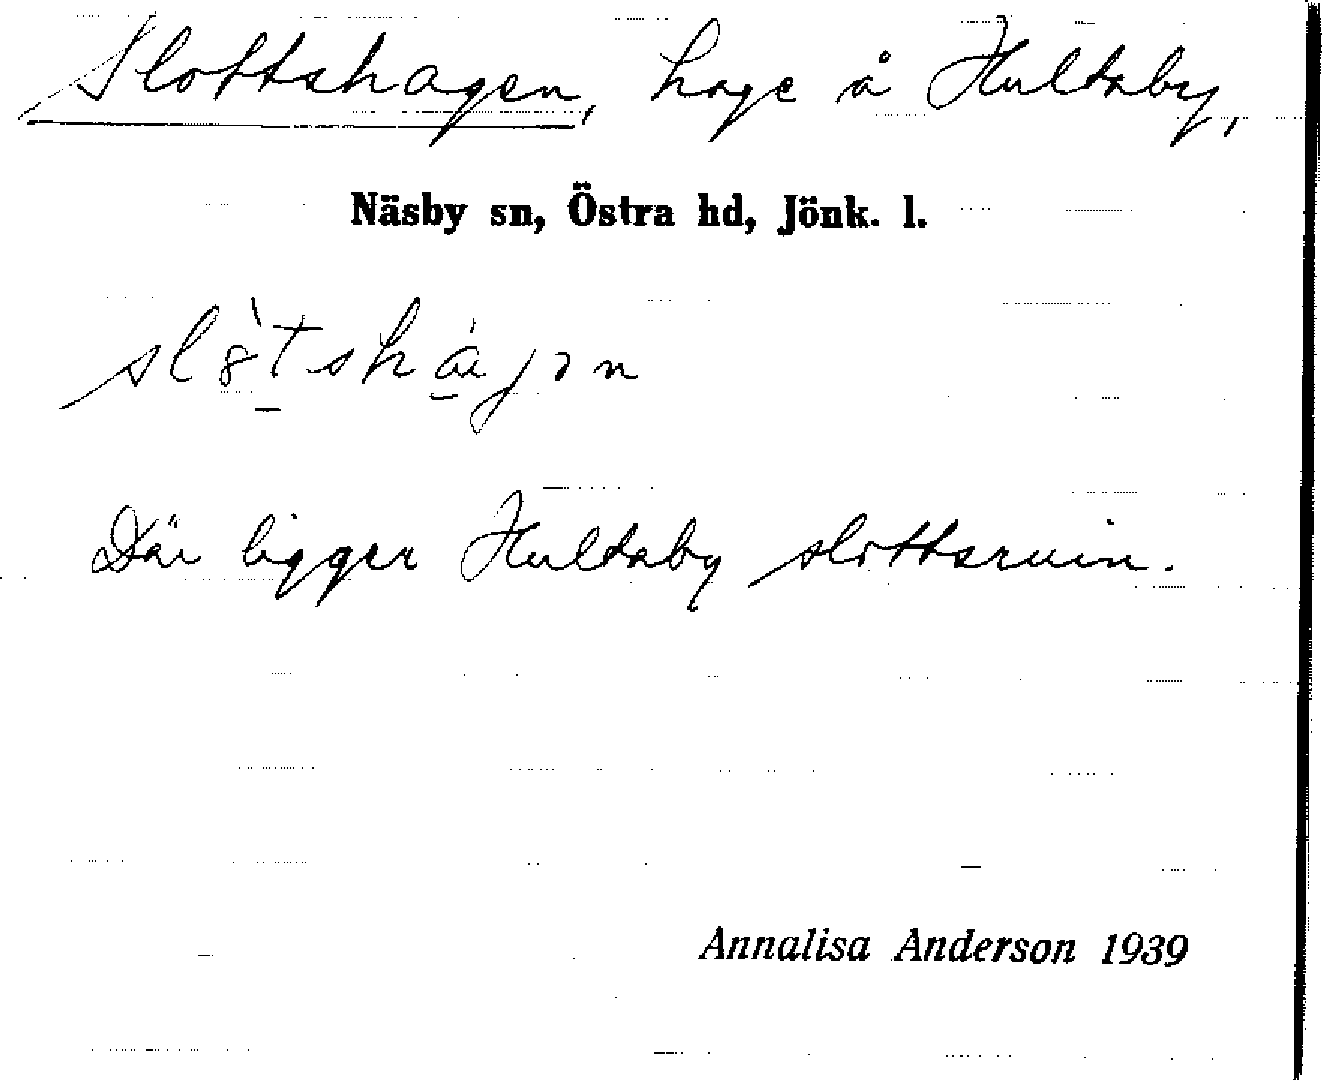 Slottshagen, hage å Hultaby,
Näsby sn, Östra hd, Jönk. l.
Där ligger Hultaby slottsruin.
Annalisa Anderson 1939